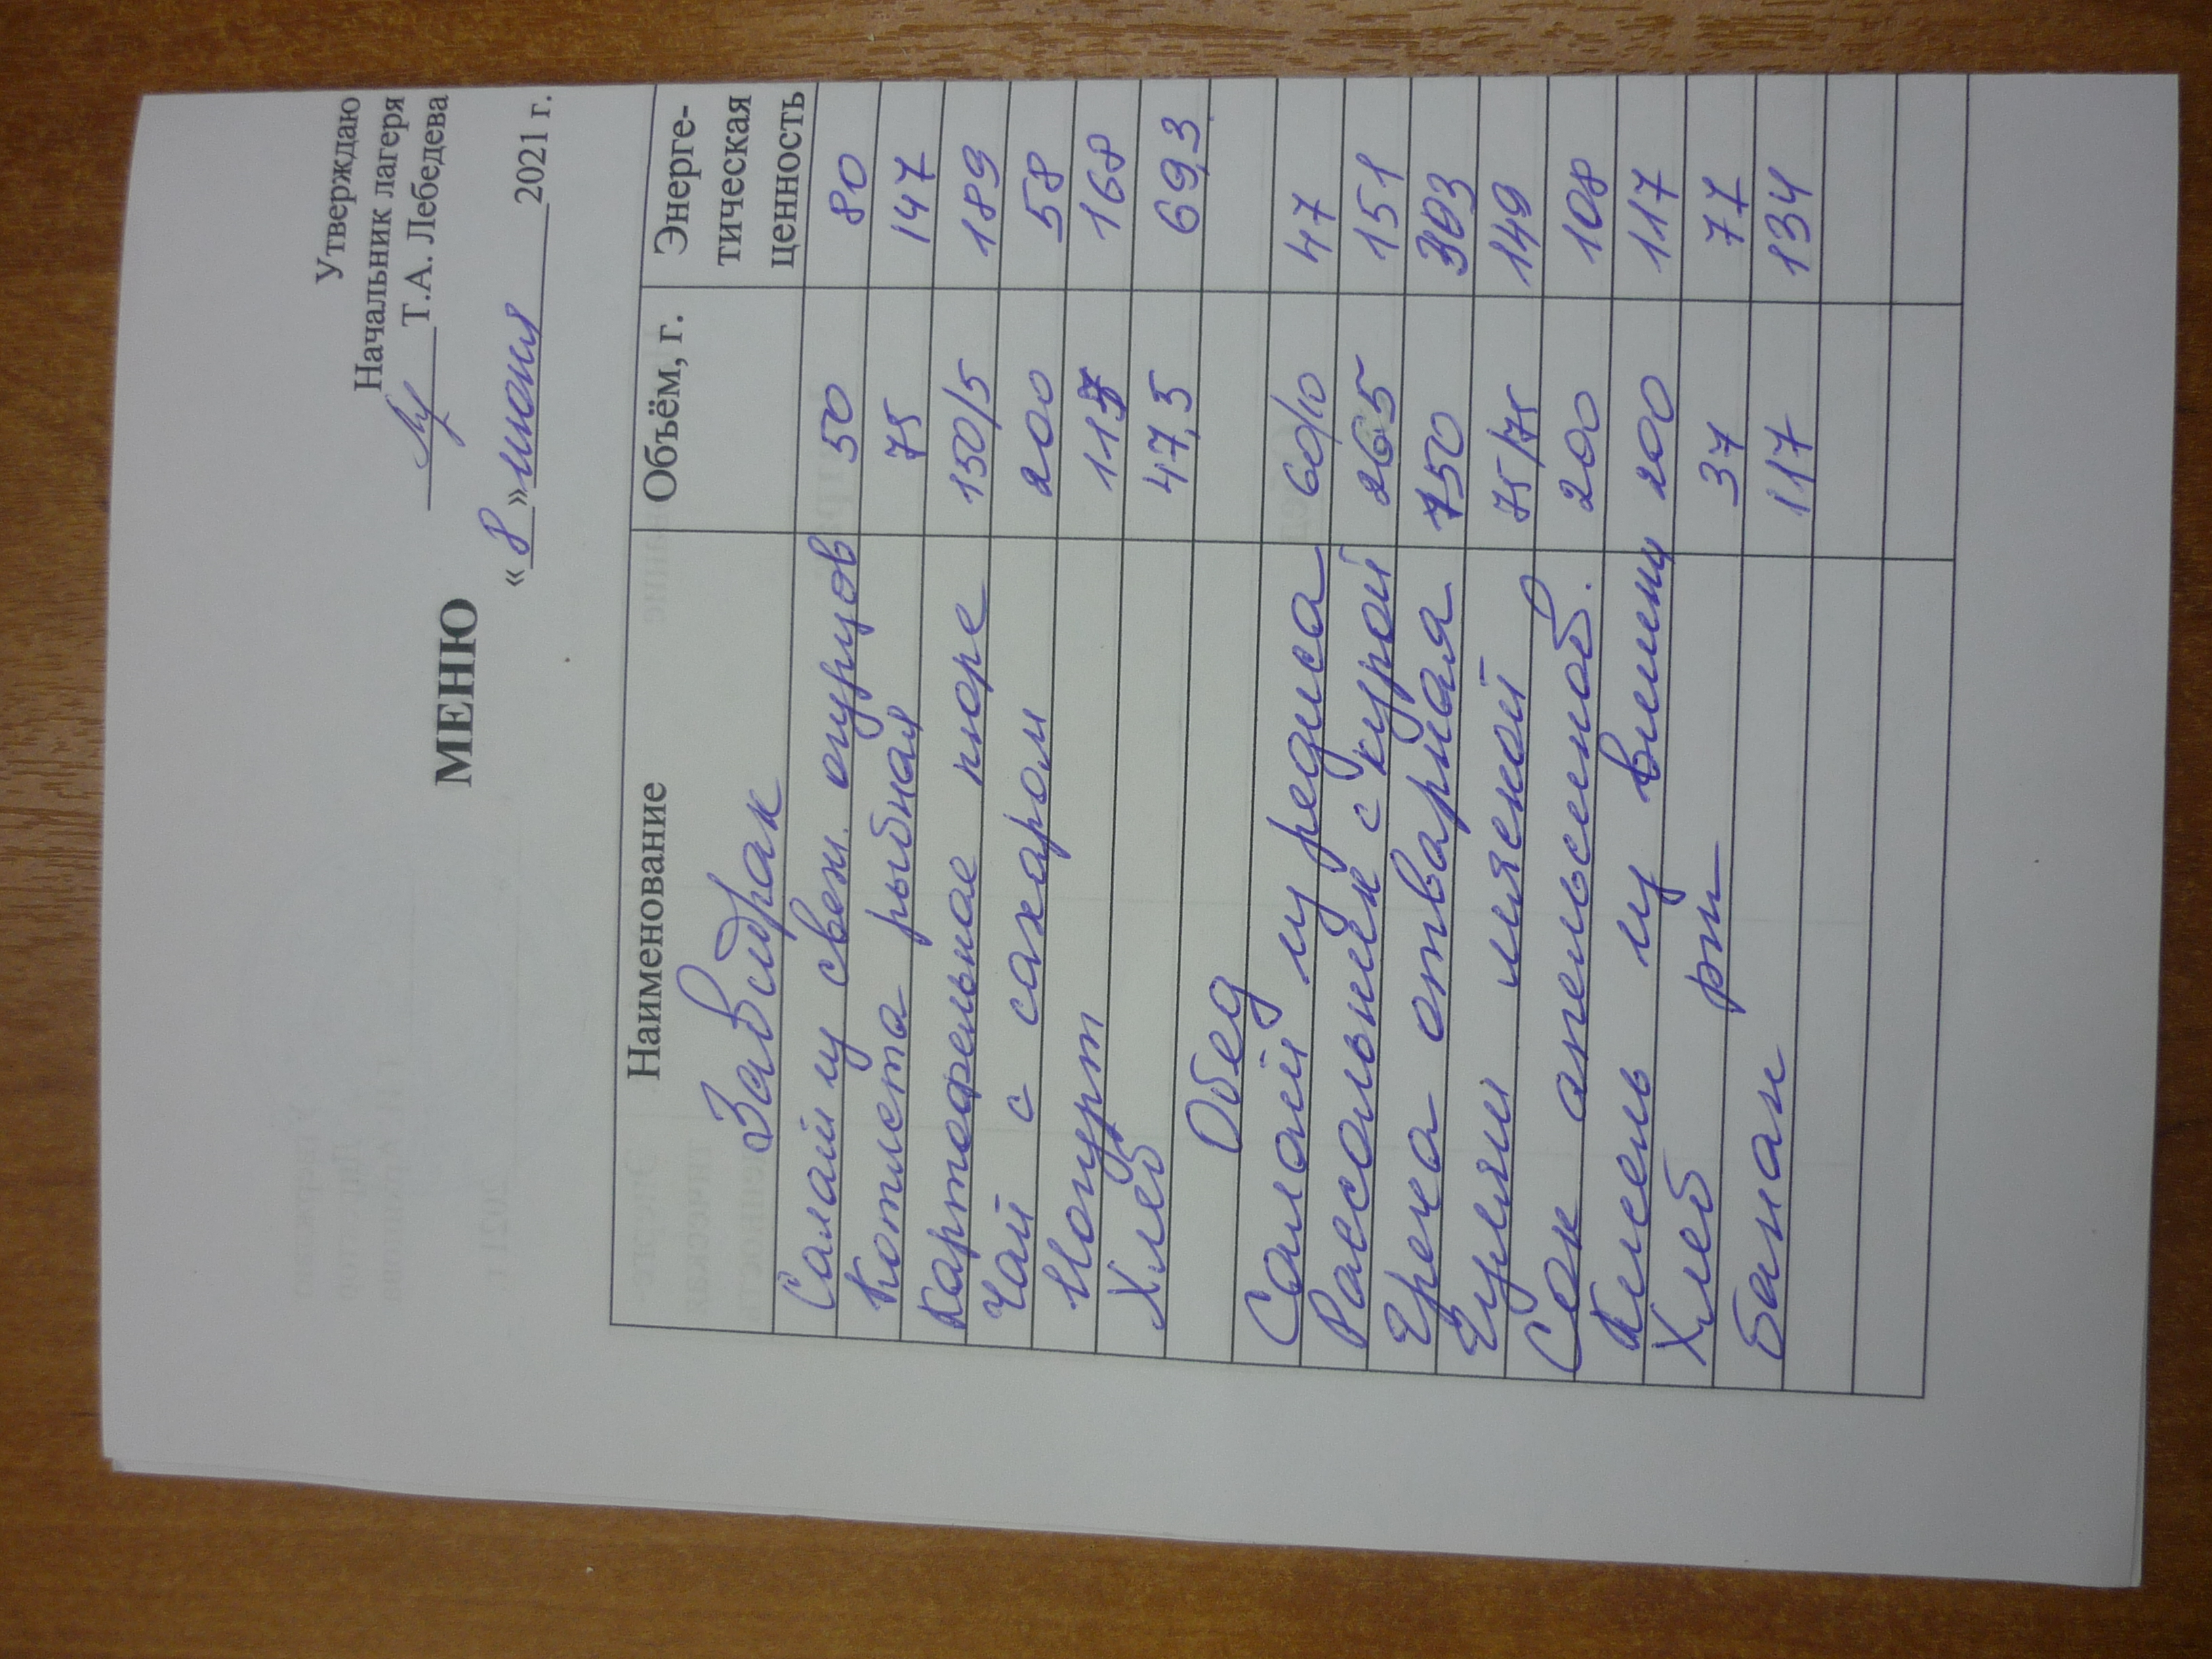 Утверждаю
Начальник лагеря
Т.А. Лебедева
«8» июня 2021 г.
МЕНЮ
Наименование Объём, г. Энерге-
тическая
ценность
Завтрак
Салат из свеж. огурцов 50 80
Котлета рыбная 75 147
Картофельное пюре 150/5 189
Чай с сахаром 200 58
Йогурт 115 168
Хлеб 47,5 69,3
Обед
Салат из редиса 60/10 47
Рассольник с курой 265 151
Греча отварная 150
Гуляш мясной 75/75 149
Сок апельсинов. 200 108
Кисель из вишни 200 117
Хлеб рп 37 77
банан 117 134